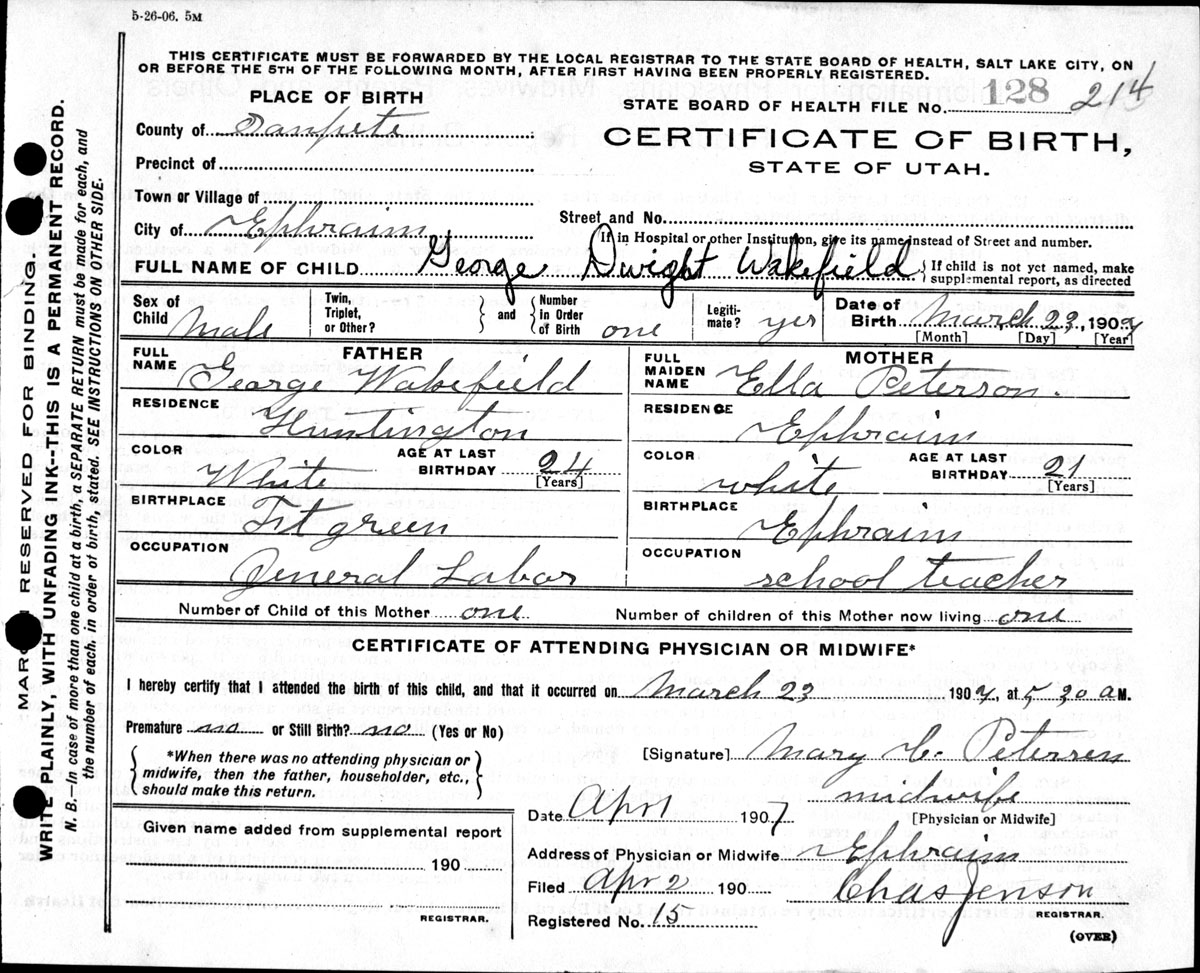 5-26-06. 5M
THIS CERTIFICATE MUST BE FORWARDED BY THE LOCAL REGISTRAR TO THE STATE BOARD OF HEALTH, SALT LAKE CITY, ON
OR BEFORE THE 5TH OF THE FOLLOWING MONTH, AFTER FIRST HAVING BEEN PROPERLY REGISTERED.
PLACE OF BIRTH
STATE BOARD OF HEALTH FILE No. 128 214
County of Sanpete
CERTIFICATE OF BIRTH,
STATE OF UTAH.
Precinct of
Town or Village of
City of Ephraim
Street and No.
If in Hospital or other Institution, give its name instead of Street and number.
FULL NAME OF CHILD George Dwight Wakefield { If child is not yet named, make
supplemental report, as directed
Sex of Child Male
Twin, Triplet, or Other? } and { Number in Order of Birth one
Legiti-mate? yes
Date of Birth March 23, 1907
[Month] [Day] [Year]
FATHER
FULL NAME George Wakefield
RESIDENCE Huntington
COLOR White
AGE AT LAST BIRTHDAY 24
[Years]
BIRTHPLACE Ft green
OCCUPATION General Labor
MOTHER
FULL MAIDEN NAME Ella Peterson.
RESIDENCE Ephraim
COLOR white
AGE AT LAST BIRTHDAY 21
[Years]
BIRTHPLACE Ephraim
OCCUPATION school teacher
Number of Child of this Mother one Number of children of this Mother now living one
CERTIFICATE OF ATTENDING PHYSICIAN OR MIDWIFE*
I hereby certify that I attended the birth of this child, and that it occurred on March 23 1907, at 5 30 a M.
Premature no or Still Birth? no (Yes or No)
{ *When there was no attending physician or
midwife, then the father, householder, etc.,
should make this return. }
[Signature] Mary C. Petersen
midwife
[Physician or Midwife]
Date Apr 1 1907
Address of Physician or Midwife Ephraim
Filed Apr 2 190 Chas Jenson
REGISTRAR.
Registered No. 15
(OVER)
Given name added from supplemental report
190
REGISTRAR.
MARGIN RESERVED FOR BINDING.
WRITE PLAINLY, WITH UNFADING INK--THIS IS A PERMANENT RECORD.
N. B.—In case of more than one child at a birth, a SEPARATE RETURN must be made for each, and
the number of each, in order of birth, stated. SEE INSTRUCTIONS ON OTHER SIDE.